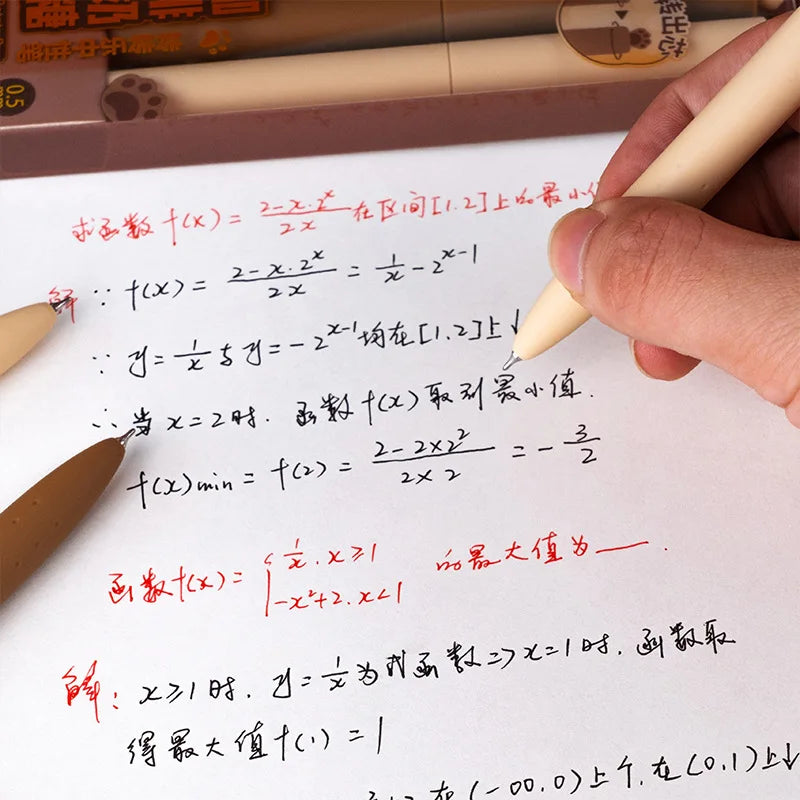 0.5
求函数 f(x) = (2-x·2^x)/(2x) 在区间[1.2]上的最小
解 ∵ f(x) = (2-x·2^x)/(2x) = 1/x - 2^(x-1)
∵ y = 1/x 与 y = -2^(x-1) 均在[1.2]上↓
∴ 当 x=2时. 函数 f(x) 取到最小值.
f(x)min = f(2) = (2-2×2^2)/(2×2) = -3/2
函数f(x) = { 1/x . x≥1 的最大值为——.
-x^2+2. x<1
解: x≥1时. y = 1/x 为减函数 => x=1时. 函数取
得最大值f(1) = 1
在(-∞.0)上↑. 在(0.1)上↓